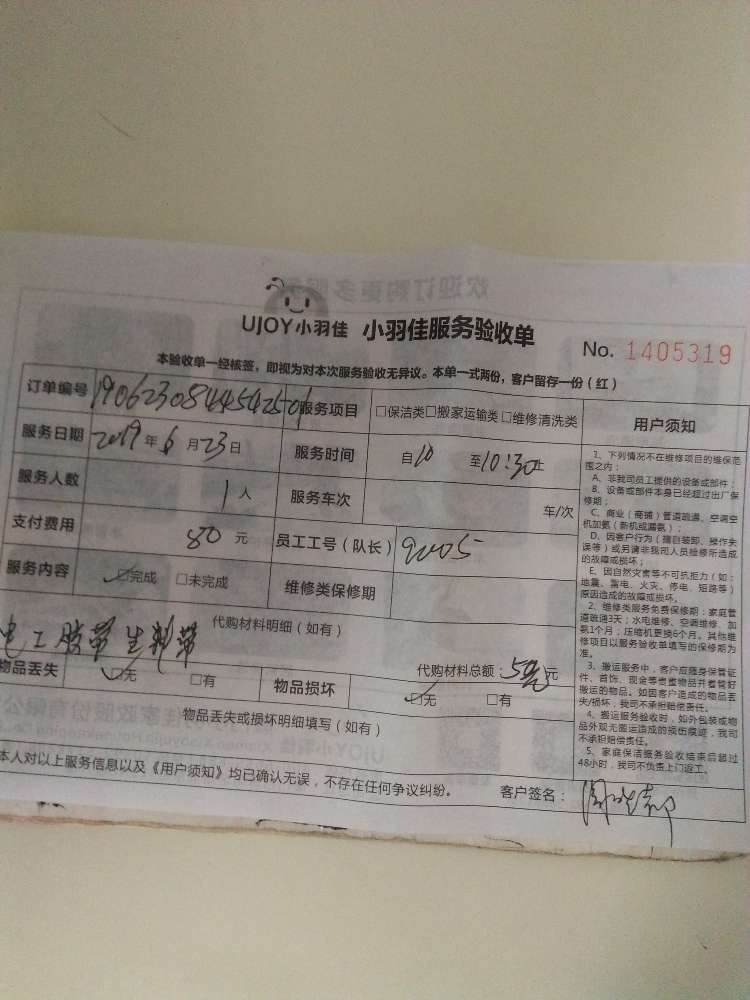 UJOY小羽佳 小羽佳服务验收单
No. 1405319
本验收单一经核签，即视为对本次服务验收无异议。本单一式两份，客户留存一份（红）
订单编号 服务项目 □保洁类□搬家运输类□维修清洗类
服务日期 2019年6月23日 服务时间 自10 至10:30止
服务人数 1人 服务车次 车/次
支付费用 80元 员工工号（队长） 92005
服务内容 ☑完成 □未完成 维修类保修期
代购材料明细（如有）
电工胶带 生料带
代购材料总额：5元
物品丢失 ☑无 □有 物品损坏 ☑无 □有
物品丢失或损坏明细填写（如有）
本人对以上服务信息以及《用户须知》均已确认无误，不存在任何争议纠纷。 客户签名：
用户须知
1、下列情况不在维修项目的维保范
围之内：
A、非我司员工提供的设备或部件；
B、设备或部件本身已经超过出厂保
修期；
C、商业（商铺）管道疏通、空调空
机加氨（新机或漏氨）；
D、因客户行为（擅自装卸、操作失
误等）或另请非我司人员检修所造成
的故障或损坏；
E、因自然灾害等不可抗拒力（如：
地震、雷电、火灾、停电、短路等）
原因造成的故障或损坏。
2、维修类服务免费保修期：家庭管
道疏通3天；水电维修、空调维修、加
氨1个月；压缩机更换6个月。其他维
修项目以服务验收单填写的保修期为
准。
3、搬运服务中，客户应随身保管证
件、首饰、现金等贵重物品并看管好
搬运的物品。如因客户造成的物品丢
失/损坏，我司不承担赔偿责任。
4、搬运服务验收时，如外包装或物
品外观无搬运造成的损伤痕迹，我司
不承担赔偿责任。
5、家庭保洁服务验收结束后超过
48小时，我司不负责上门返工。